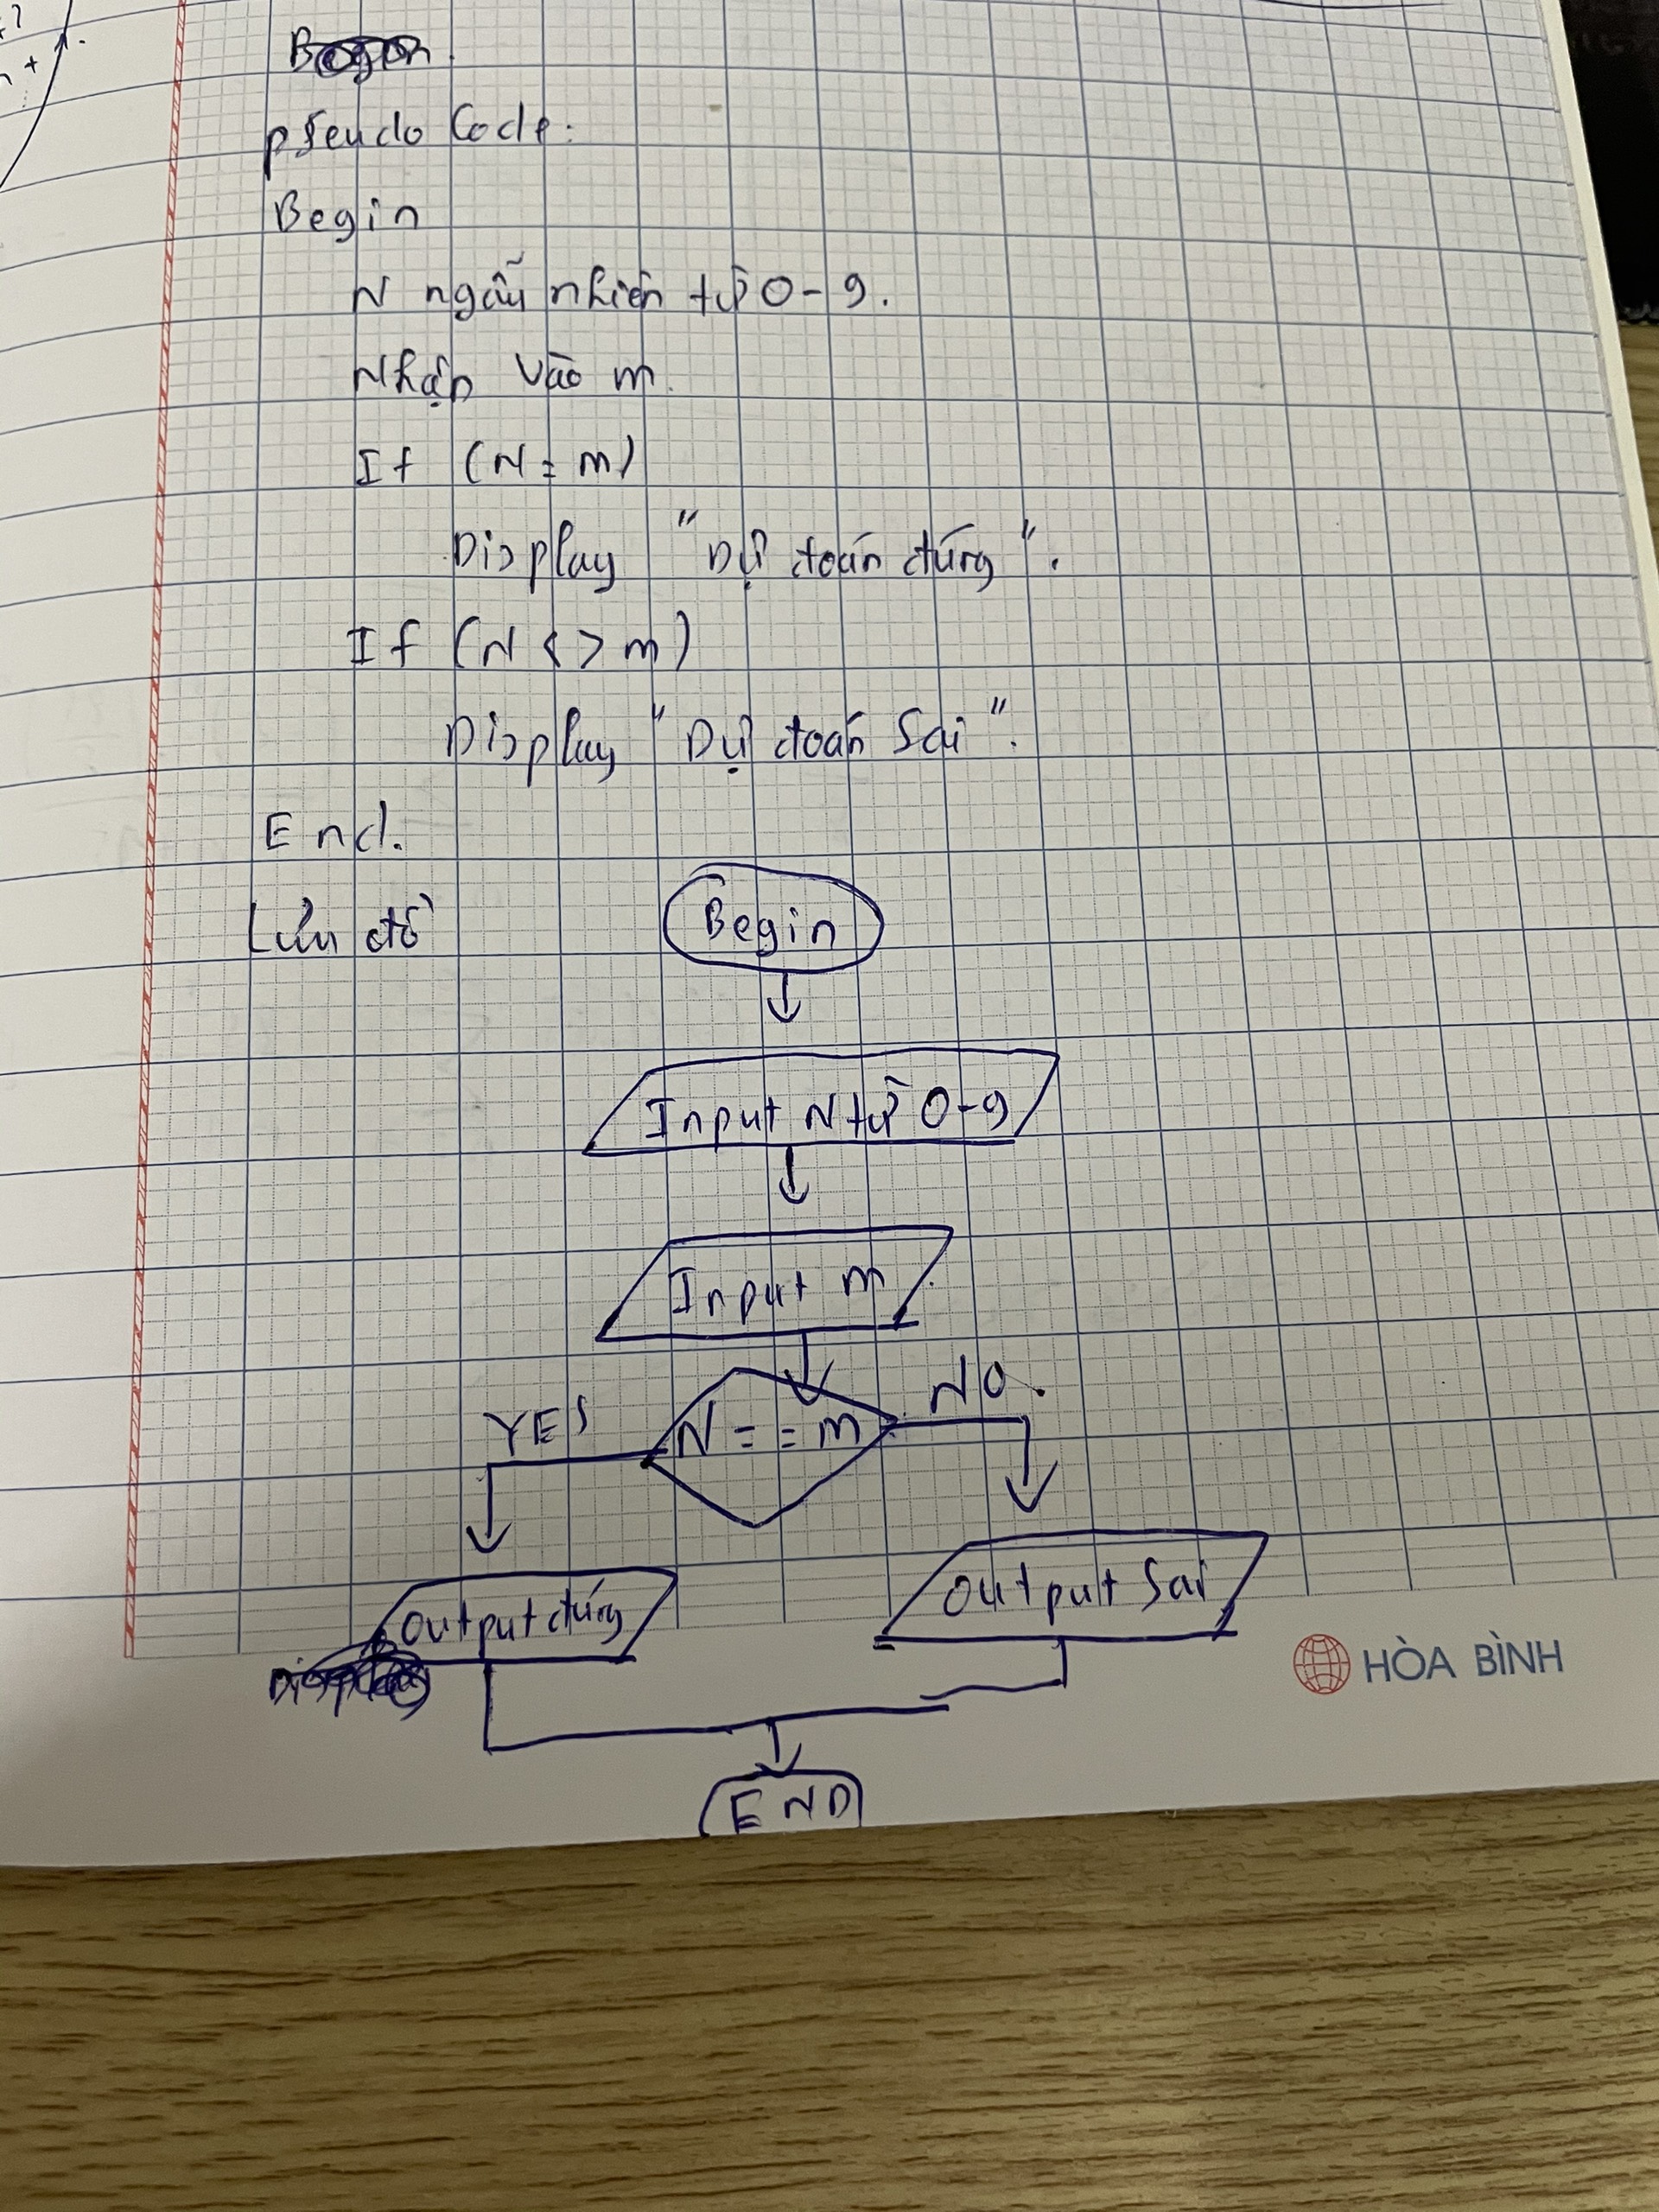 pseudo Code:
Begin
N ngẫu nhiên từ 0-9.
Nhập vào m.
If (N = m)
Display "Dự đoán đúng".
If (N < > m)
Display "Dự đoán Sai".
End.
Lưu đồ
Begin
Input N từ 0-9
Input m
YES
N = = m
NO.
Output đúng
Output Sai
END
HÒA BÌNH